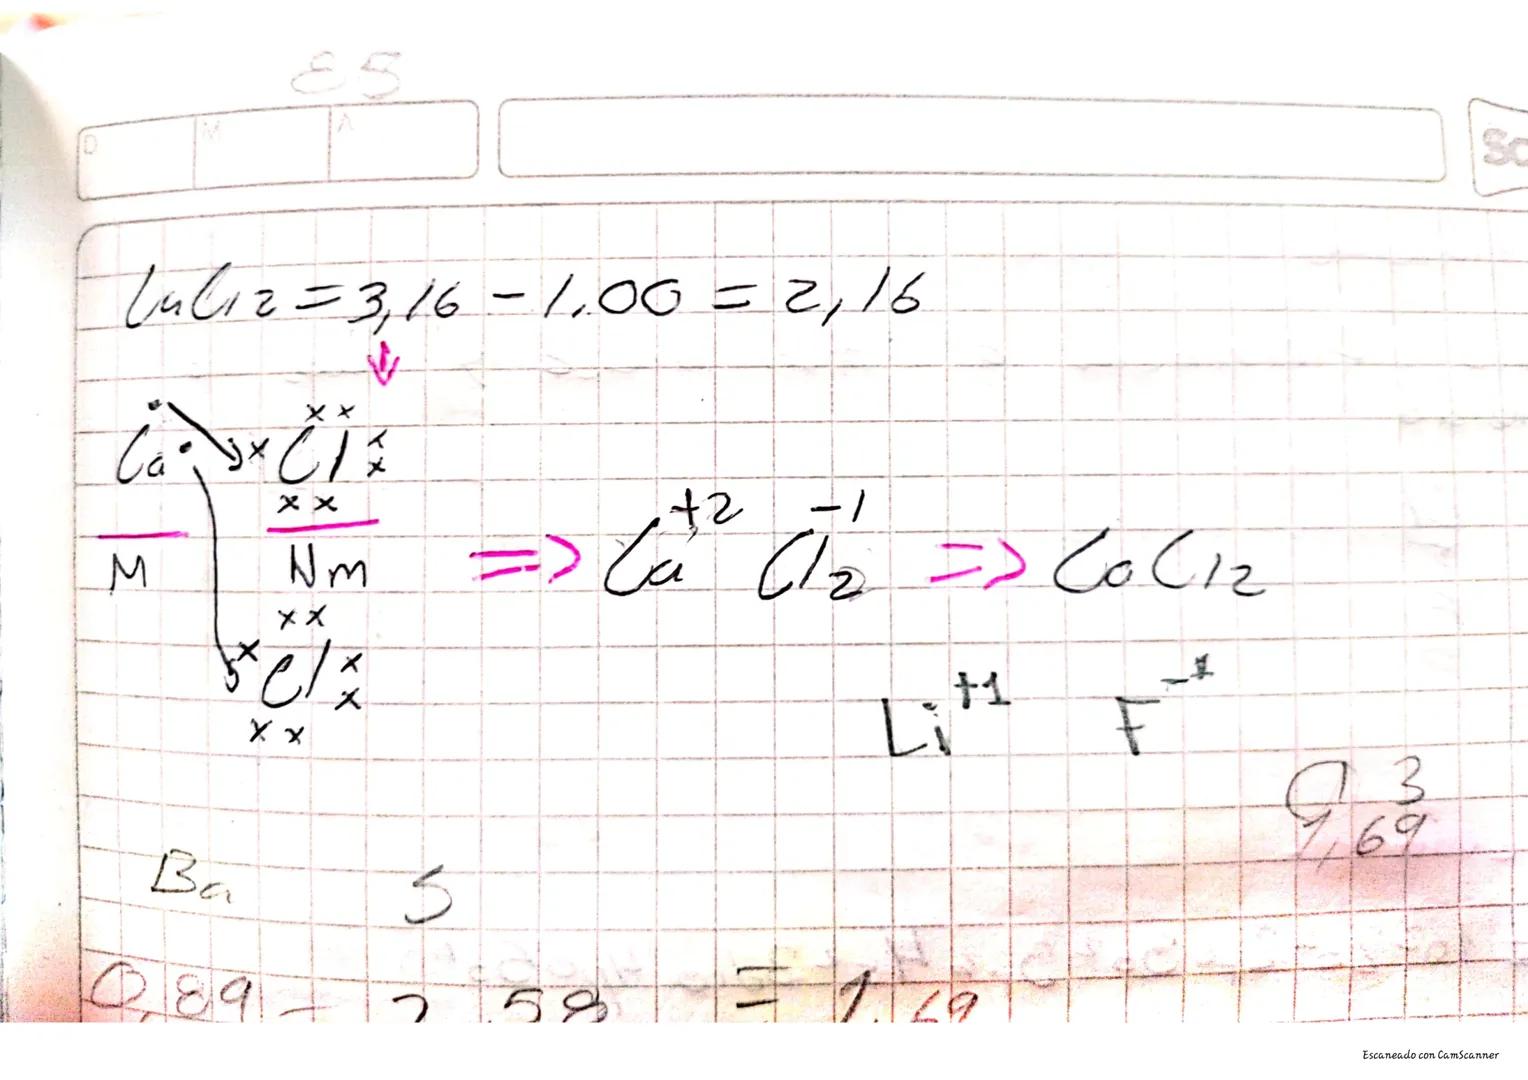 85
D M A
CaCl2 = 3,16 - 1.00 = 2,16
Ca Cl
M Nm => Ca+2 Cl2-1 => CaCl2
Cl
Li+1 F-1
3
1,69
Ba S
0,89 - 2,58 = 1,69
Escaneado con CamScanner